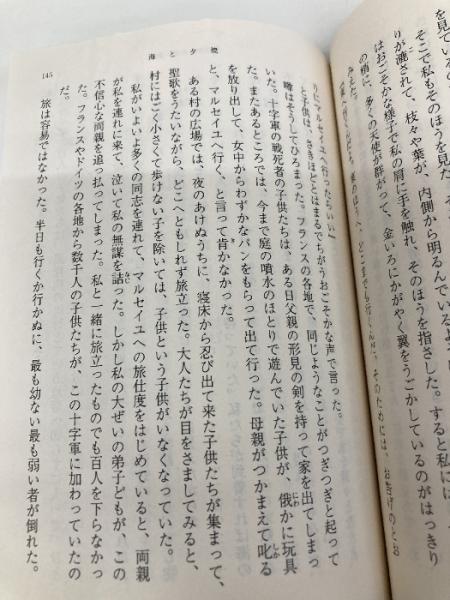 を見ている
そこで私もそのほうを見た
りが濾されて、枝々や葉が、内側から明るんでい
はおごそかな様子で私の肩に手を触れ、そのほうを指さした。すると私
の梢に、多くの天使が群がって、金いろにかがやく翼をうごかしているのがはっきり
みえた。
東のほうへ、どこまでも行くんだ。そのためには、お告げのとお
りにマルセイユへ行ったらいい」
と子供は、さきほどとはまるでちがうおごそかな声で言った。
噂はそうしてひろまった。フランスの各地で、同じようなことがつぎつぎと起って
いた。十字軍の戦死者の子供たちは、ある日父親の形見の剣を持って家を出てしまっ
た。またあるところでは、今まで庭の噴水のほとりで遊んでいた子供が、俄かに玩具
を放り出して、女中からわずかなパンをもらって出て行った。母親がつかまえて叱る
と、マルセイユへ行く、と言って肯かなかった。
ある村の広場では、夜のあけぬうちに、寝床から忍び出て来た子供たちが集まって、
聖歌をうたいながら、どこへともしれず旅立った。大人たちが目をさましてみると、
村にはごく小さくて歩けない子を除いては、子供という子供がいなくなっていた。
私がいよいよ多くの同志を連れて、マルセイユへの旅仕度をはじめていると、両親
が私を連れに来て、泣いて私の無謀を詰った。しかし私の大ぜいの弟子どもが、この
不信心な両親を追っ払ってしまった。私と一緒に旅立ったものでも百人を下らなかっ
た。フランスやドイツの各地から数千人の子供たちが、この十字軍に加わっていたの
だ。
旅は容易ではなかった。半日も行くか行かぬに、最も幼ない最も弱い者が倒れた。
海と夕焼
145